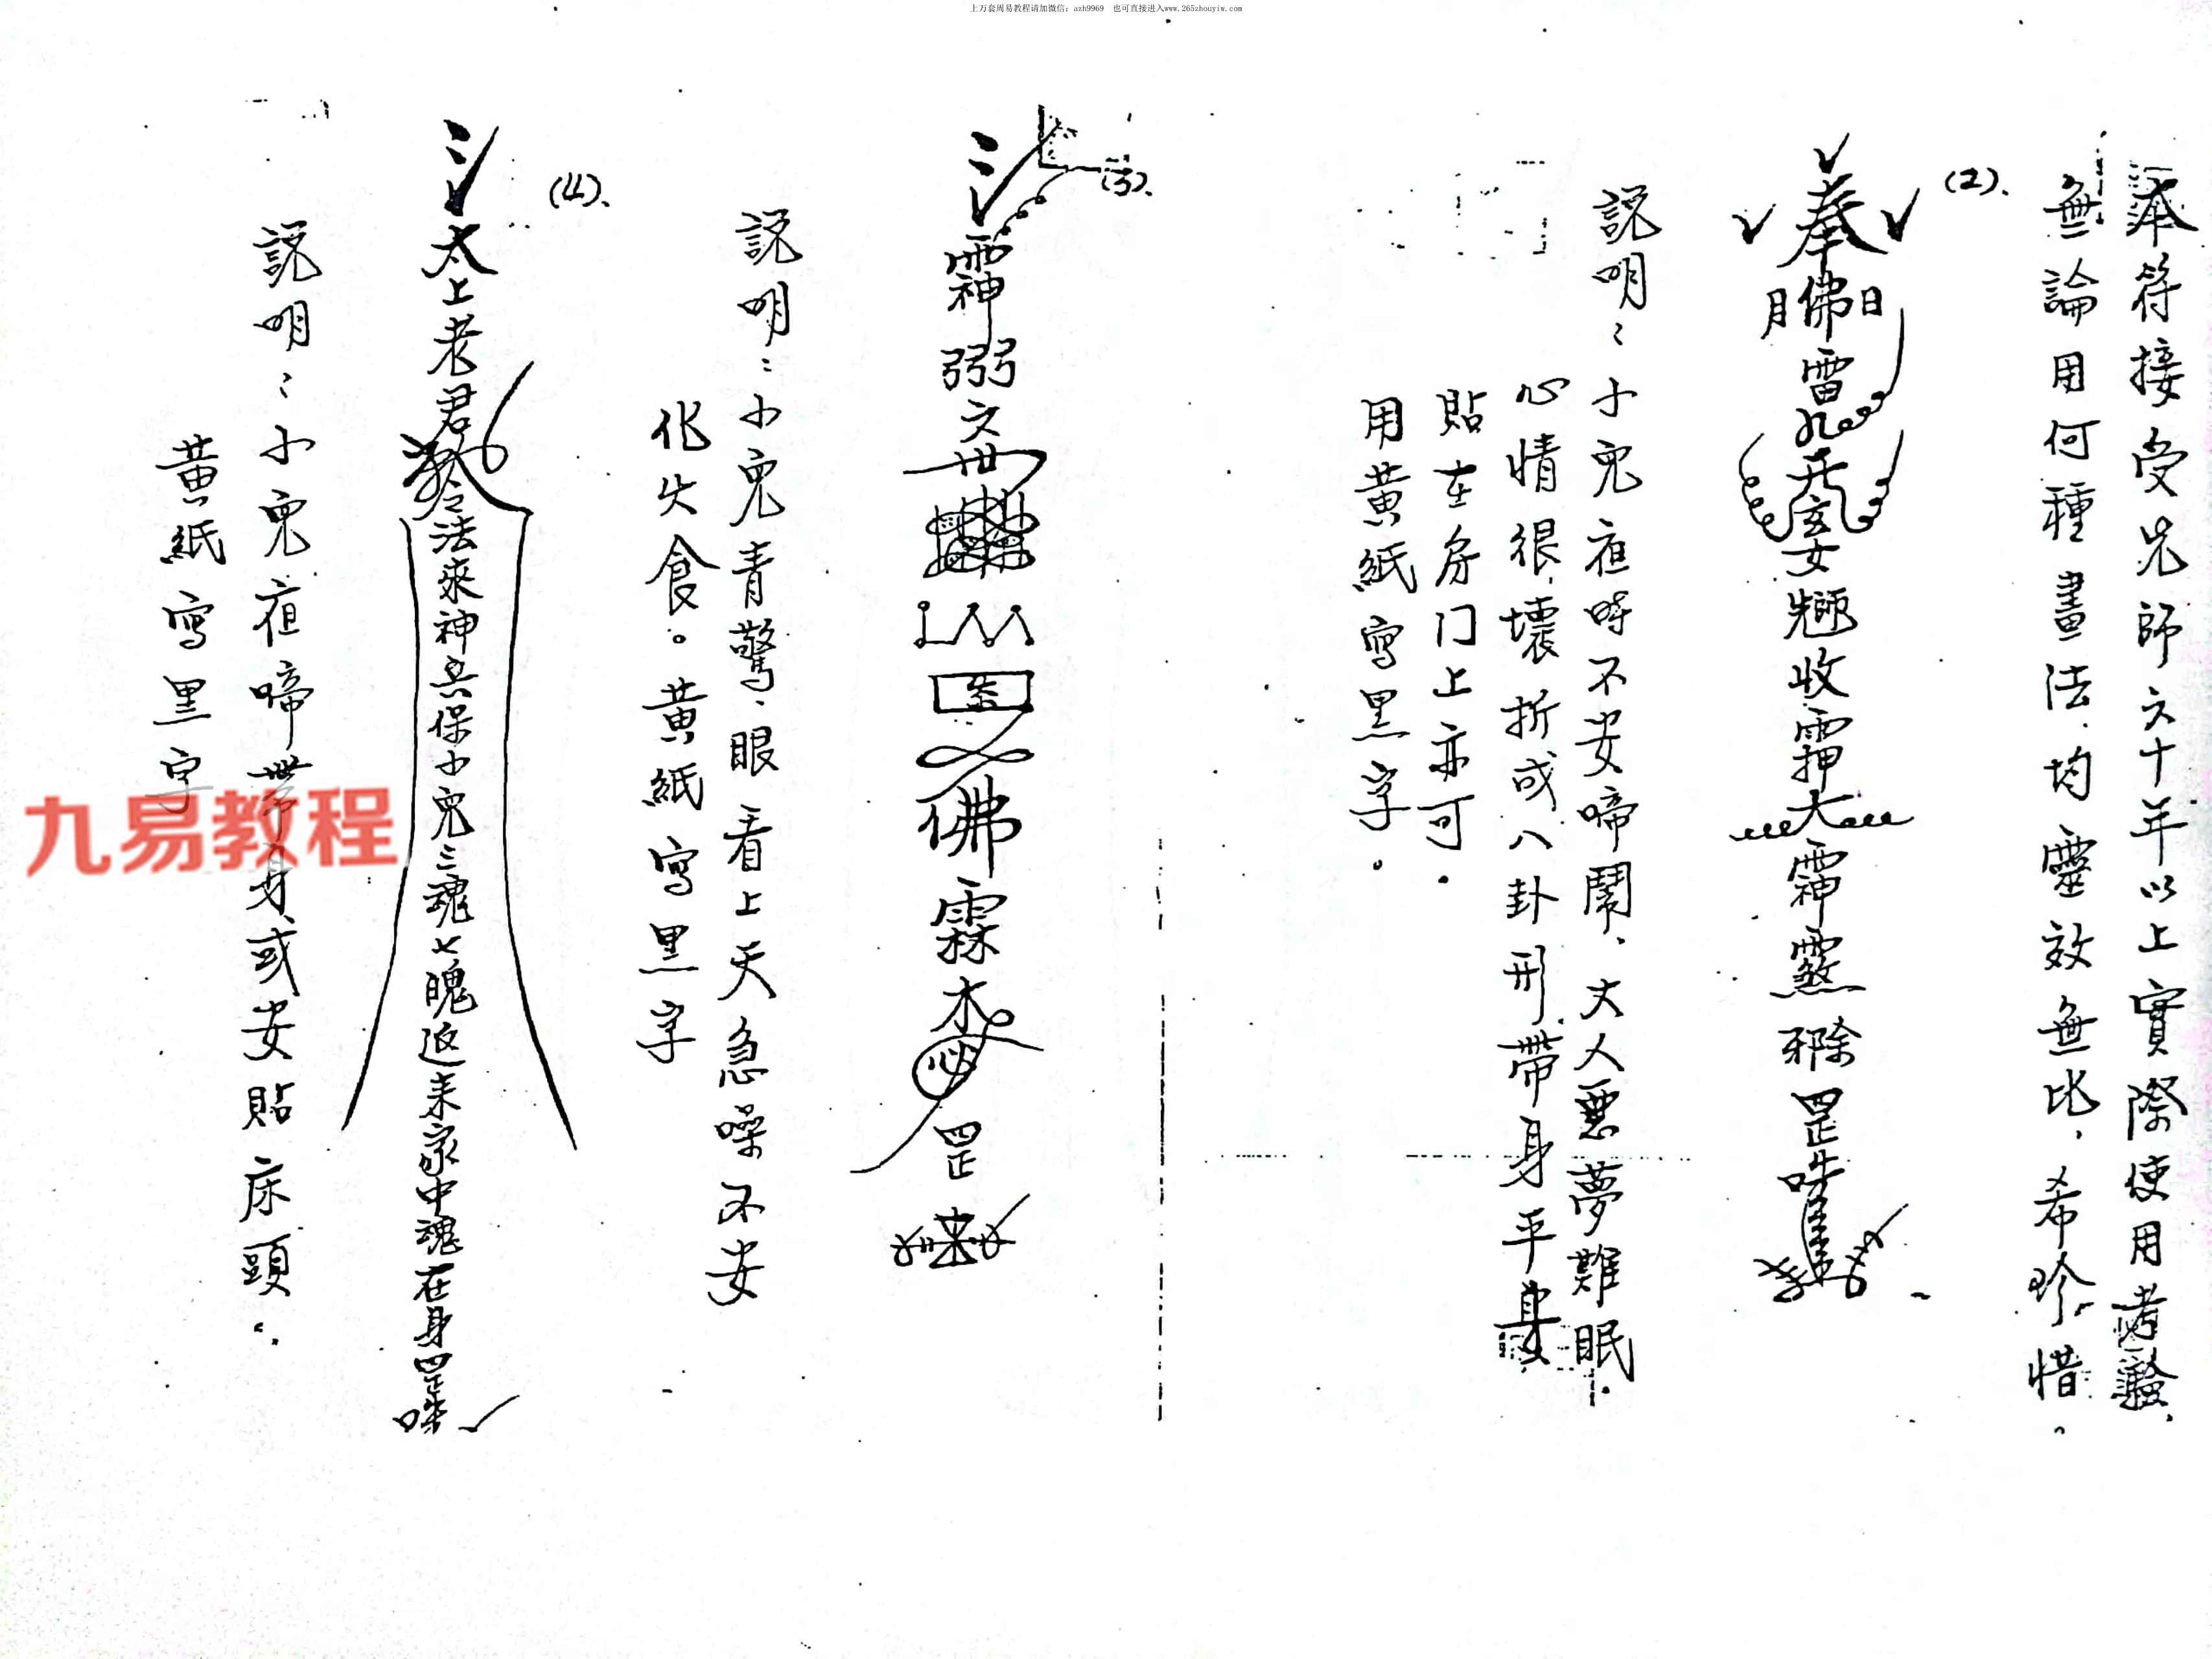 上万套周易教程请加微信：azh9969 也可直接进入www.265zhouyiw.com
本符接受先師六十年以上實際使用考驗，
無論用何種畫法，均靈效無比，希珍惜。
(2)、
奉
月佛日
雷
女 收 押 大 神 煞 罡
說明：小兒夜時不安啼鬧、大人惡夢難眠．
心情很壞，折成八卦形帶身平安
貼在房门上亦可．
用黃紙寫黑字．
(3)、
神 弼 佛 霖 罡
說明：小兒青驚、眼看上天急噪不安
化火食。黃紙寫黑字
(4)、
太上老君 令法來神兵保小兒三魂七魄返来家中魂在身罡
說明：小兒夜啼帶身或安貼床頭。
黃紙寫黑字
九易教程